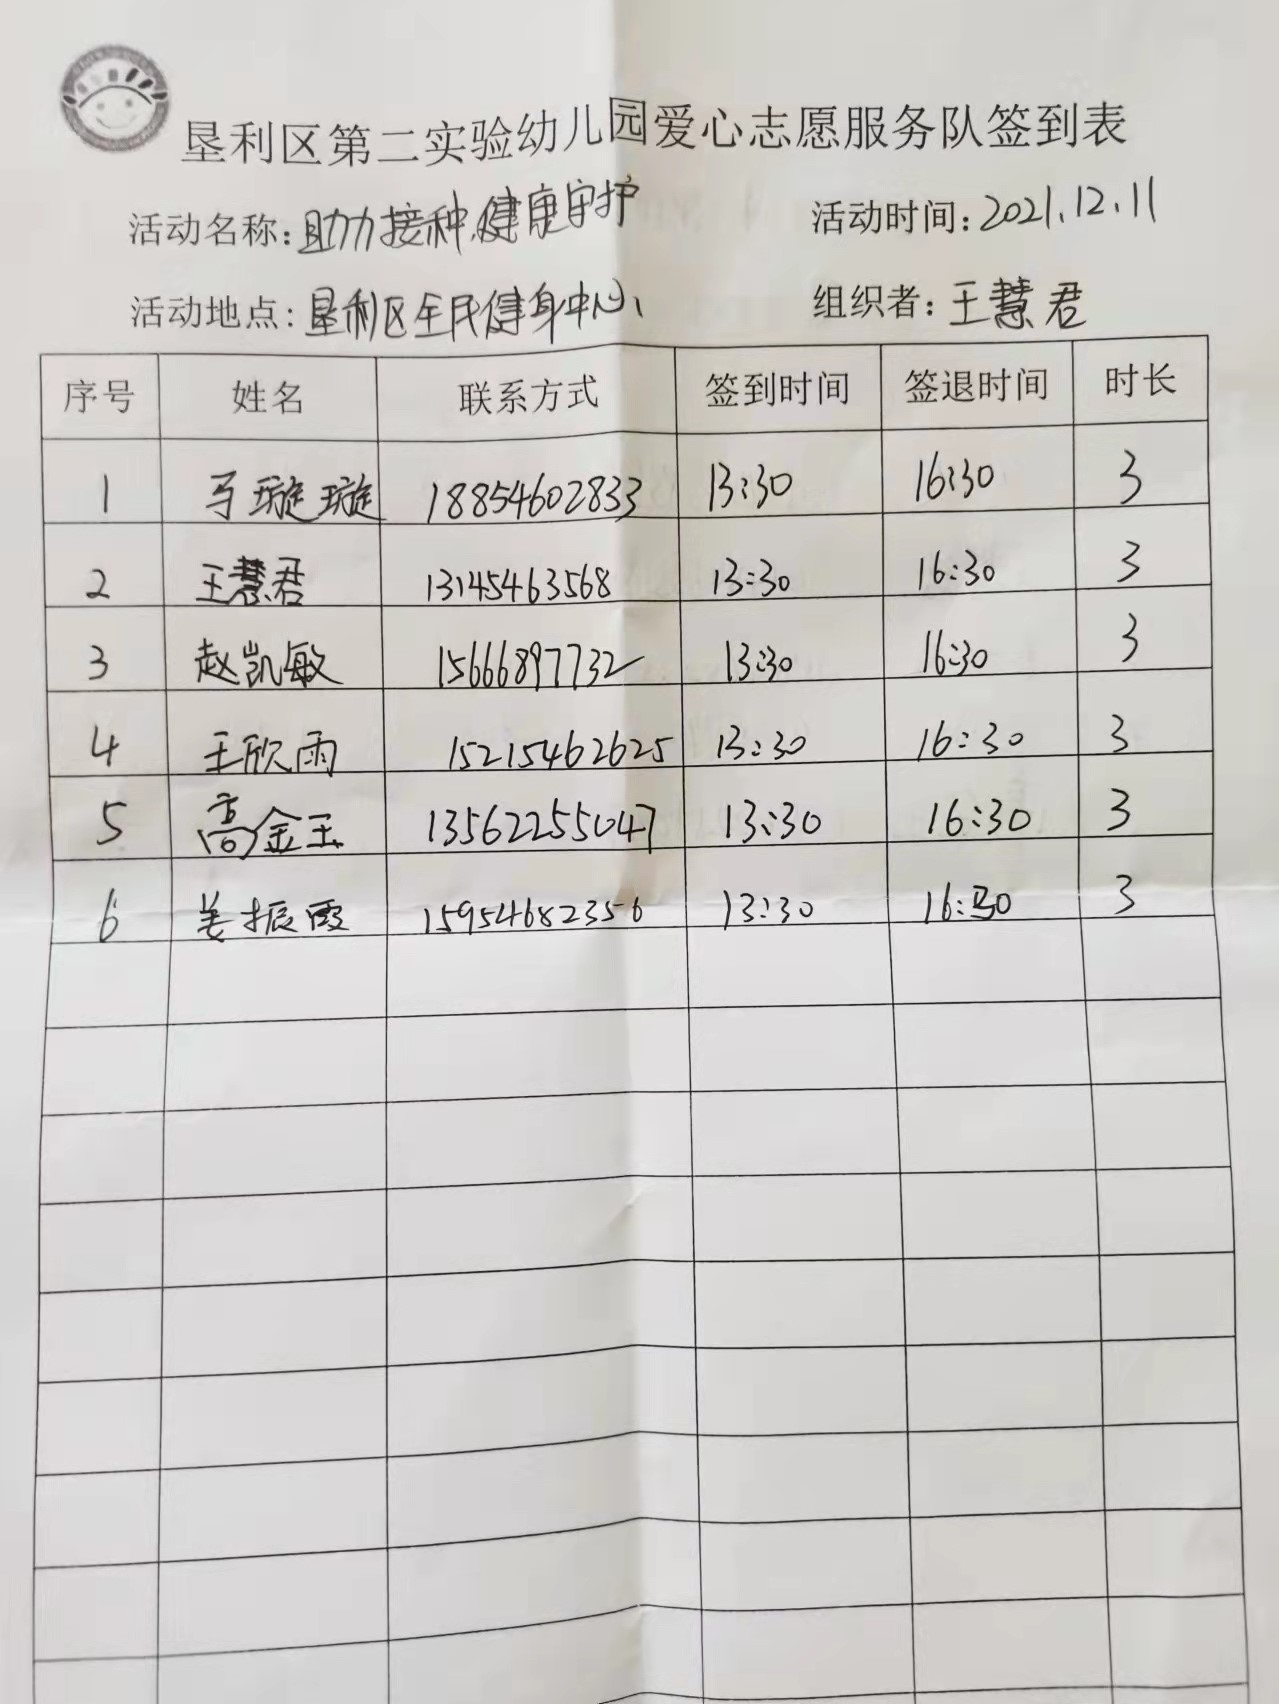 垦利区第二实验幼儿园爱心志愿服务队签到表
活动名称:助力接种,健康守护 活动时间:2021.12.11
活动地点:垦利区全民健身中心 组织者:王慧君
序号 姓名 联系方式 签到时间 签退时间 时长
1 马璇璇 18854602833 13:30 16:30 3
2 王慧君 13145463568 13:30 16:30 3
3 赵凯敏 15666897732 13:30 16:30 3
4 王欣雨 15215462625 13:30 16:30 3
5 高金玉 13562255047 13:30 16:30 3
6 姜振霞 15954682356 13:30 16:30 3